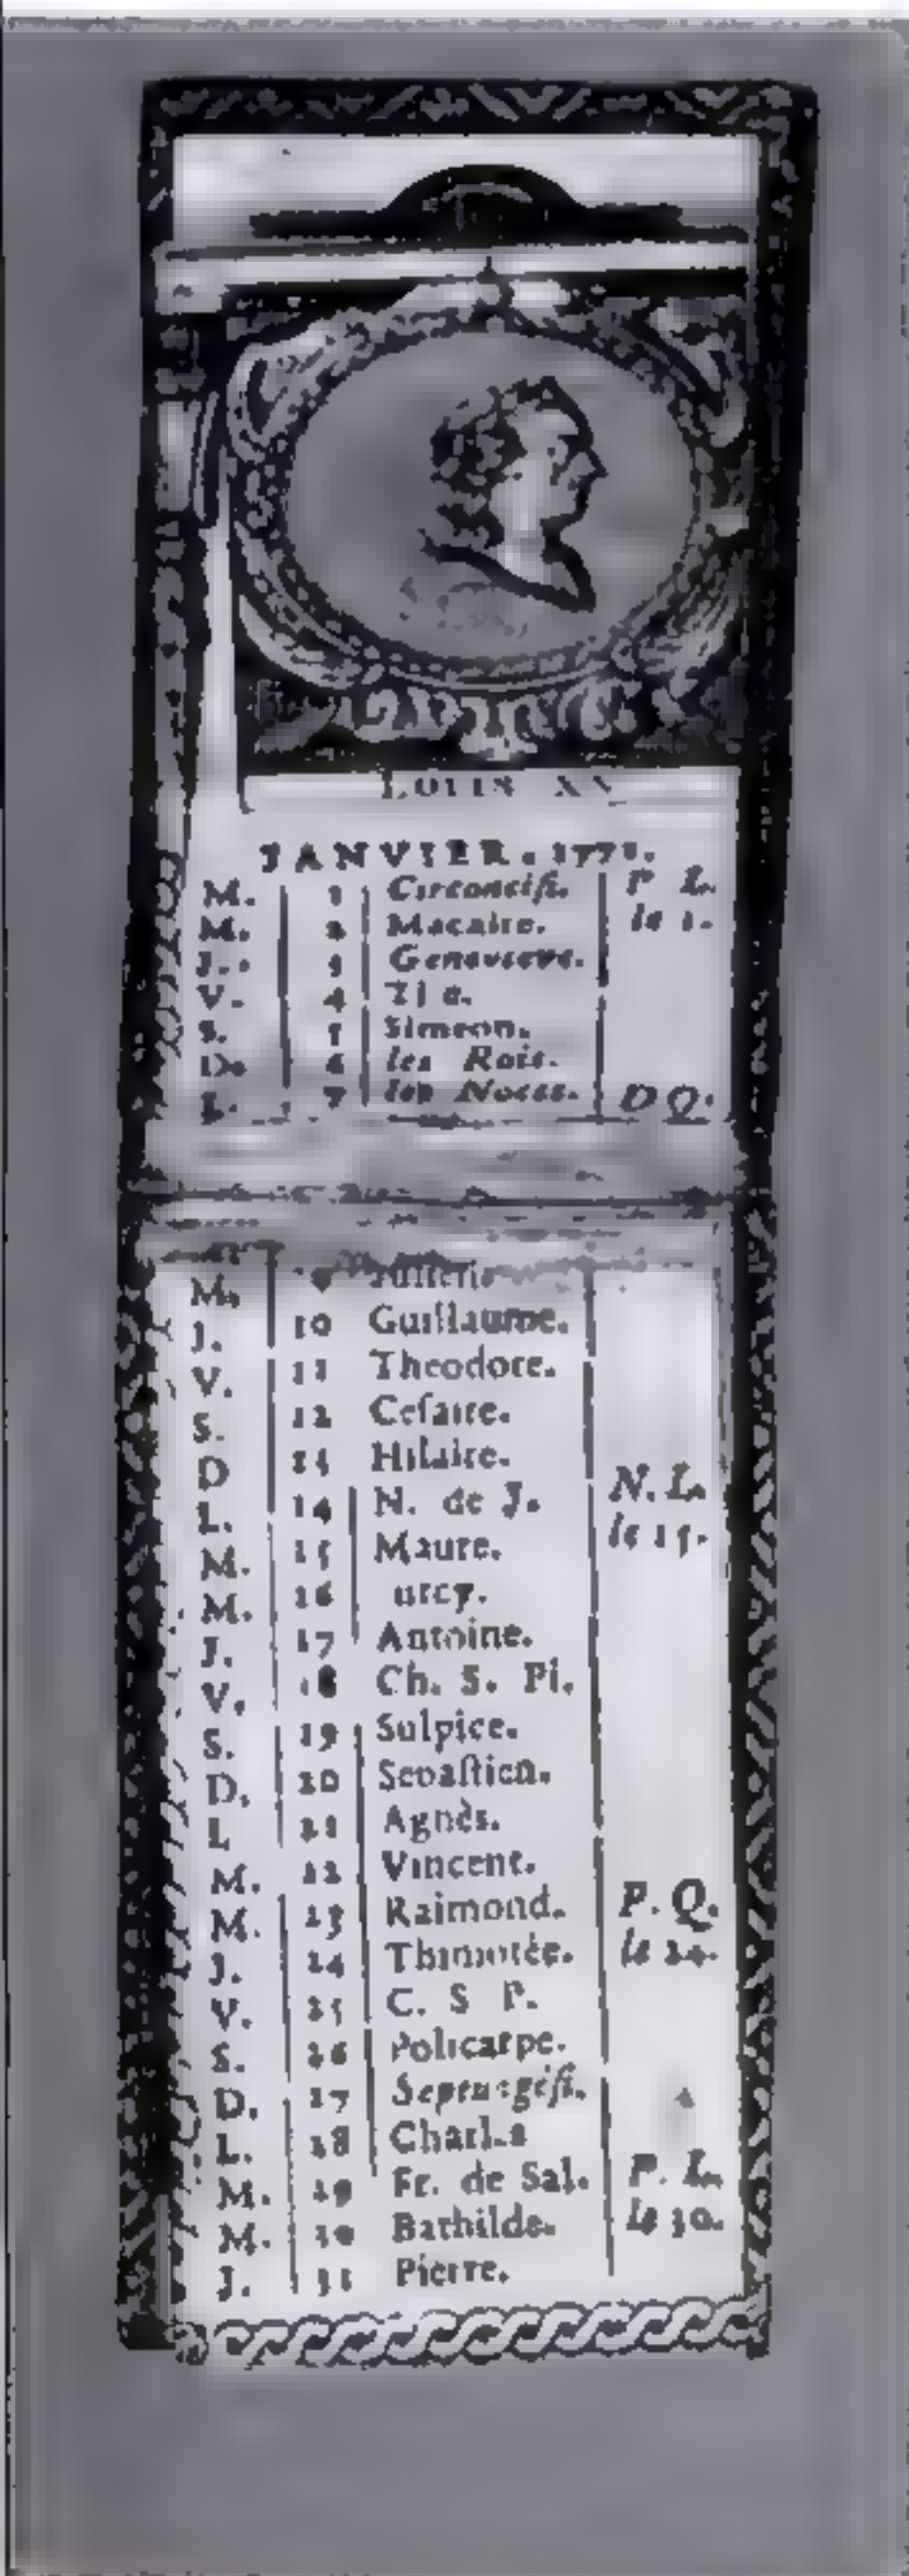 LOUIS XV
JANVIER. 1771.
M. 1 Circoncisi. P. L.
M. 2 Macaire. le 1.
J. 3 Genevieve.
V. 4
S. 5 Simeon.
D. 6 les Rois.
L. 7 les Noces. D Q.
M.
J. 10 Guillaume.
V. 11 Theodore.
S. 12 Ceſaire.
D 13 Hilaire.
L. 14 N. de J. N. L.
M. 15 Maure. le 15.
M. 16 urcy.
J. 17 Antoine.
V. 18 Ch. S. Pi.
S. 19 Sulpice.
D. 20 Sebaſtien.
L 21 Agnès.
M. 22 Vincent.
M. 23 Raimond. P. Q.
J. 24 Thimotée. le 24.
V. 25 C. S P.
S. 26 Policarpe.
D. 27 Septuagéſi.
L. 28
M. 29 Fr. de Sal. P. L.
M. 30 Bathilde. le 30.
J. 31 Pierre.